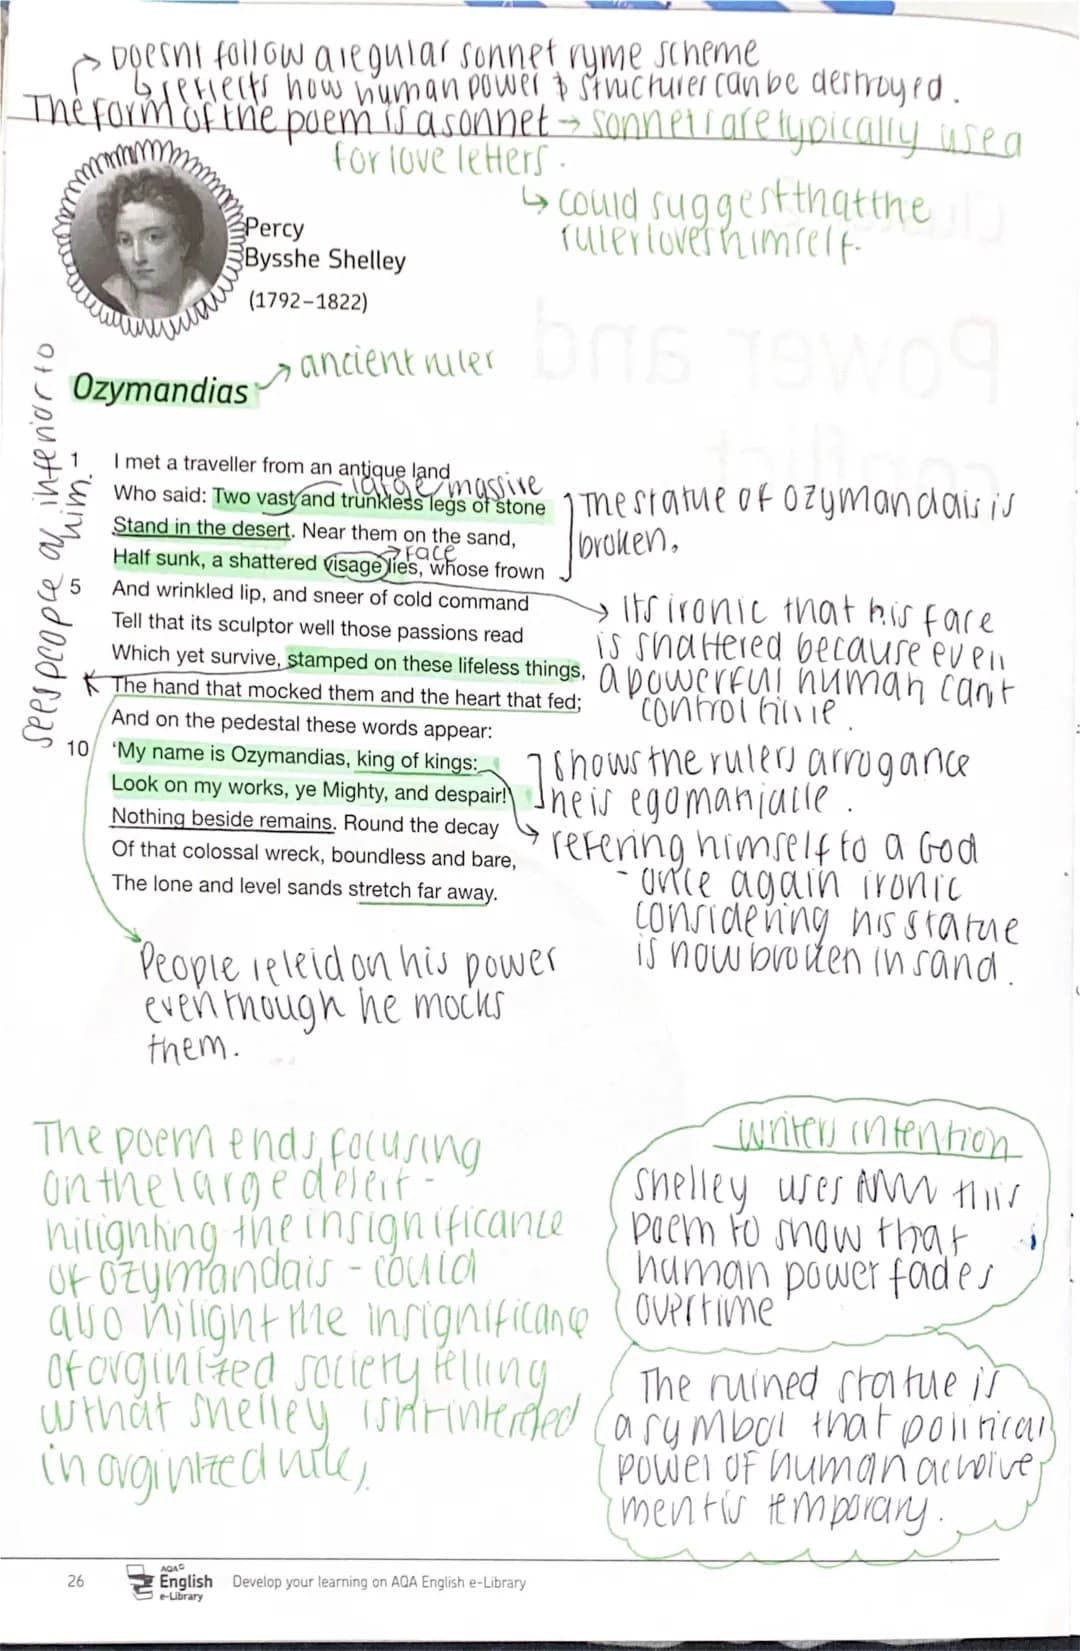 Doesnt follow a regular sonnet ryme scheme
↳ reflects how human power & structures can be destroyed.
The form of the poem is a sonnet → sonnets are typically used
for love letters.
↳ could suggest that the
ruler loves himself.
Percy
Bysshe Shelley
(1792–1822)
Ozymandias
→ ancient ruler
sees people as inferior to
him.
1 I met a traveller from an antique land
large/massive
Who said: Two vast and trunkless legs of stone
Stand in the desert. Near them on the sand,
→ face
Half sunk, a shattered visage lies, whose frown
5 And wrinkled lip, and sneer of cold command
Tell that its sculptor well those passions read
Which yet survive, stamped on these lifeless things,
The hand that mocked them and the heart that fed;
And on the pedestal these words appear:
10 ‘My name is Ozymandias, king of kings:
Look on my works, ye Mighty, and despair!’
Nothing beside remains. Round the decay
Of that colossal wreck, boundless and bare,
The lone and level sands stretch far away.
The statue of ozymandais is
broken.
→ Its ironic that his face
is shattered because even
a powerful human can't
control
shows the rulers arrogance
he is egomaniacle.
refering himself to a God
- once again ironic
considering his statue
is now broken in sand.
People releid on his power
even though he mocks
them.
The poem ends focusing
on the large desert -
hilighting the insignificance
of ozymandais - could
also hilight the insignificance
of orginized society telling
us that shelley isnt interested
in orginized
writers intention
Shelley uses this
poem to show that
human power fades
overtime
The ruined statue is
a symbol that political
power of human achoive
ment is temporary.
26
AQA
English
e-Library
Develop your learning on AQA English e-Library